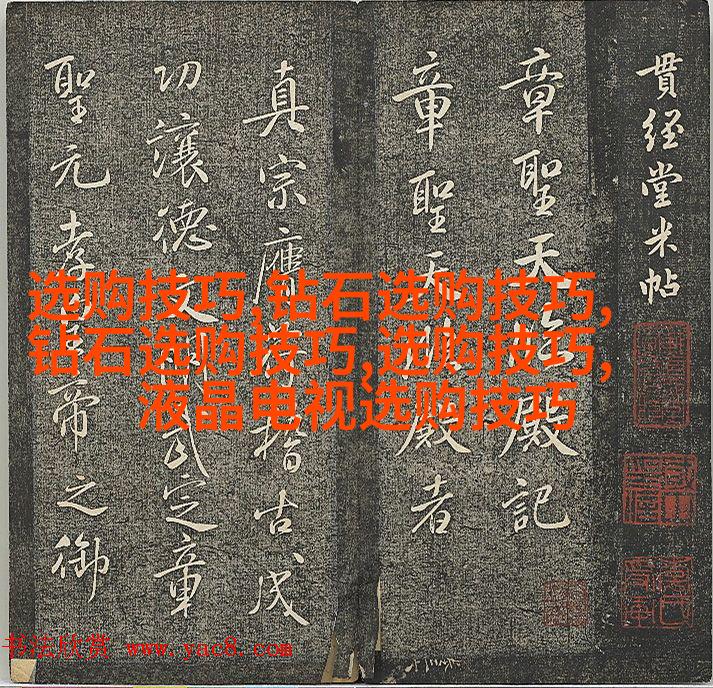 貫經堂米帖
章聖天臨殿記
章聖天臨殿者
真宗膺稽古成
功讓德文明武定章
聖元孝皇帝之御
选购技巧,钻石选购技巧,
钻石选购技巧,选购技巧,
液晶电视选购技巧
书法欣赏 www.yac8.com